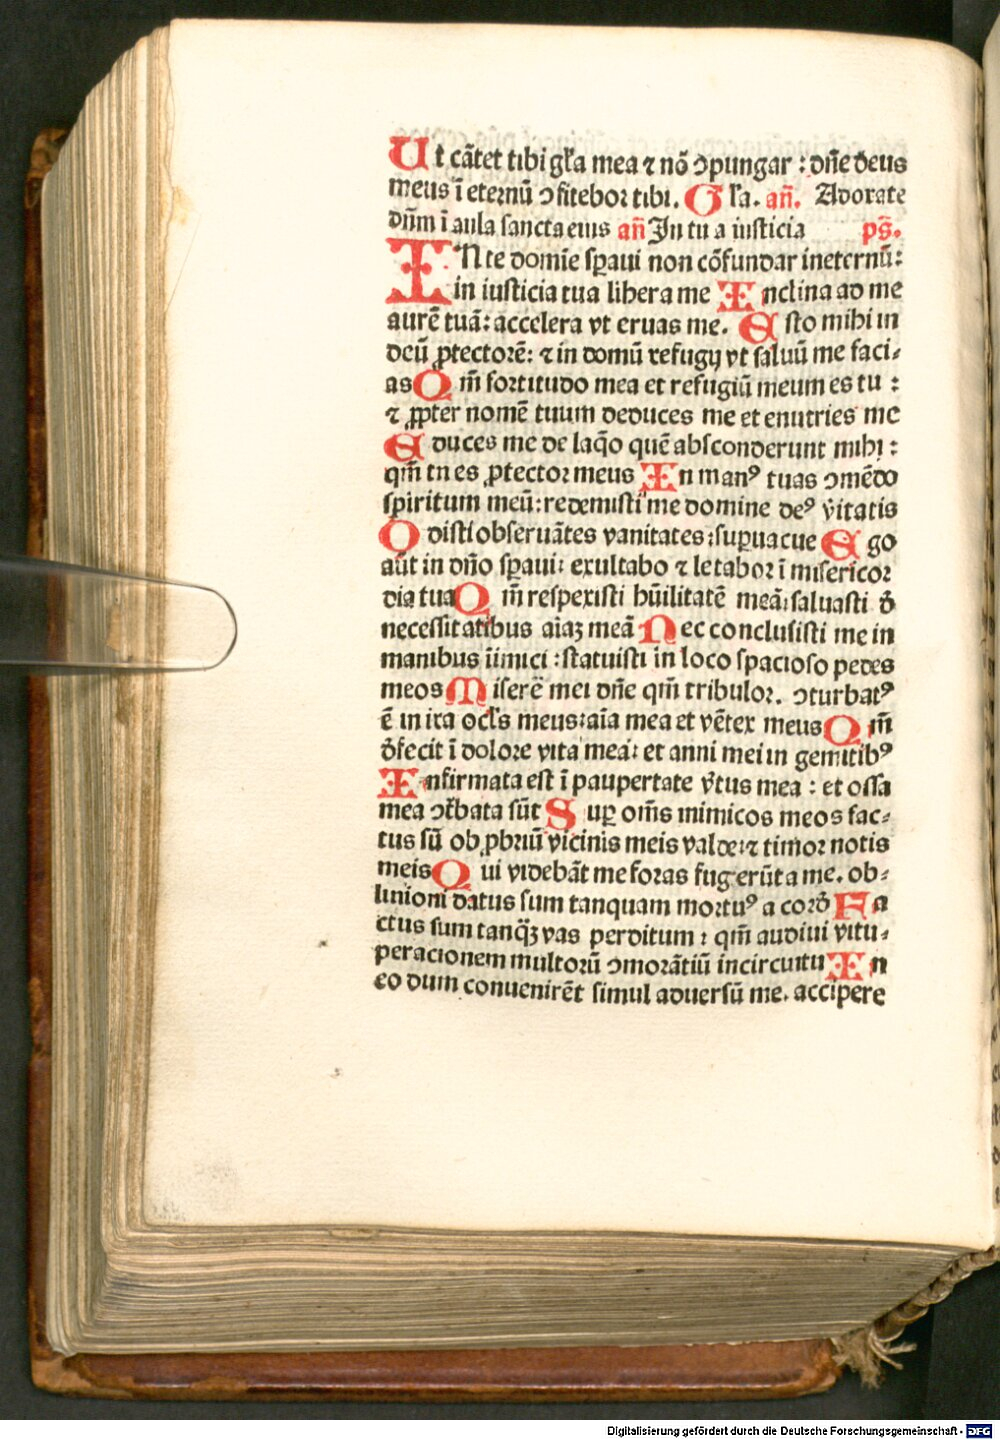 Ut cātet tibi gľa mea ⁊ nō ɔpungar : dn̄e deus
meus ī eternū ɔfitebor tibi. Gľa. an̄. Adorate
dn̄m ī aula sancta eius an̄ In tu a iusticia ps̄.
IN te domīe sꝑaui non cōfundar ineternū:
in iusticia tua libera me Inclina ad me
aurē tuā: accelera vt eruas me. Esto mihi in
deū ꝓtectorē: ⁊ in domū refugij vt saluū me faci⸗
as Qm̄ fortitudo mea et refugiū meum es tu :
⁊ ꝓpter nomē tuum deduces me et enutries me
Educes me de laq̄o quē absconderunt mihi :
qm̄ tu es ꝓtector meus In manꝰ tuas ɔmēdo
spiritum meū: redemisti me domine deꝰ v̄itatis
Odisti obseruātes vanitates: suꝑuacue Ego
aūt in dn̄o sꝑaui: exultabo ⁊ letabor ī misericor
dia tua Qm̄ respexisti hūilitatē meā: saluasti d̄
necessitatibus aīaꝫ meā Nec conclusisti me in
manibus īimici : statuisti in loco spacioso pedes
meos Miserē mei dn̄e qm̄ tribulor. ɔturbatꝰ
ē in ira ocľs meus: aīa mea et vētex meus Qm̄
d̄fecit ī dolore vita mea: et anni mei in gemitibꝰ
Infirmata est ī paupertate v̄tus mea : et ossa
mea ɔťbata sūt Suꝑ om̄s inimicos meos fac⸗
tus sū obꝓbriū vicinis meis valde: ⁊ timor notis
meis Qui videbāt me foras fugerūt a me. ob⸗
liuioni datus sum tanquam mortuꝰ a cord̄ Fa
ctus sum tanq̄ꝫ vas perditum : qm̄ audiui vitu⸗
peracionem multorū ɔmorātiū incircuitu In
eo dum conuenirēt simul aduersū me. accipere
Digitalisierung gefördert durch die Deutsche Forschungsgemeinschaft - DFG